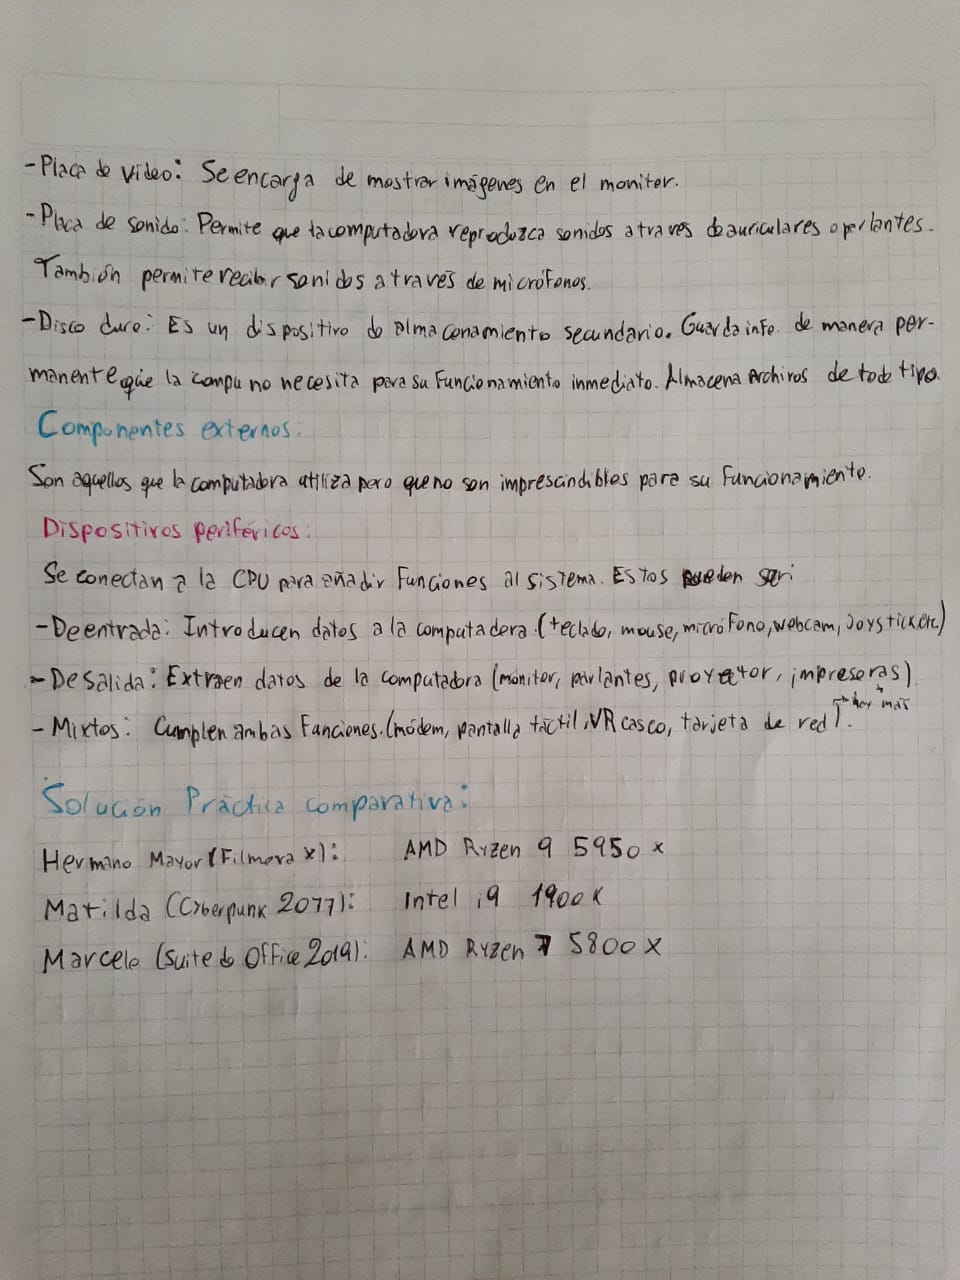 -Placa de video: Se encarga de mostrar imágenes en el monitor.
-Placa de sonido: Permite que la computadora reproduzca sonidos a traves de auriculares o parlantes.
También permite recibir sonidos a través de micrófonos.
-Disco duro: Es un dispositivo de almacenamiento secundario. Guarda info. de manera per-
manente que la compu no necesita para su Funcionamiento inmediato. Almacena Archivos de todo tipo.
Componentes externos:
Son aquellos que la computadora utiliza pero que no son imprescindibles para su Funcionamiento.
Dispositivos periféricos:
Se conectan a la CPU para añadir Funciones al sistema. Estos pueden ser:
-De entrada: Introducen datos a la computadora. (teclado, mouse, micróFono, webcam, Joystick, etc.)
-De Salida: Extraen datos de la computadora (monitor, parlantes, proyector, impresoras).
- Mixtos: Cumplen ambas Funciones. (módem, pantalla táctil, VR casco, tarjeta de red). → hay más
Solución Práctica comparativa:
Hermano Mayor (Filmora X): AMD Ryzen 9 5950 x
Matilda (Cyberpunk 2077): Intel i9 1900K
Marcelo (Suite de Office 2019): AMD Ryzen 7 5800 X